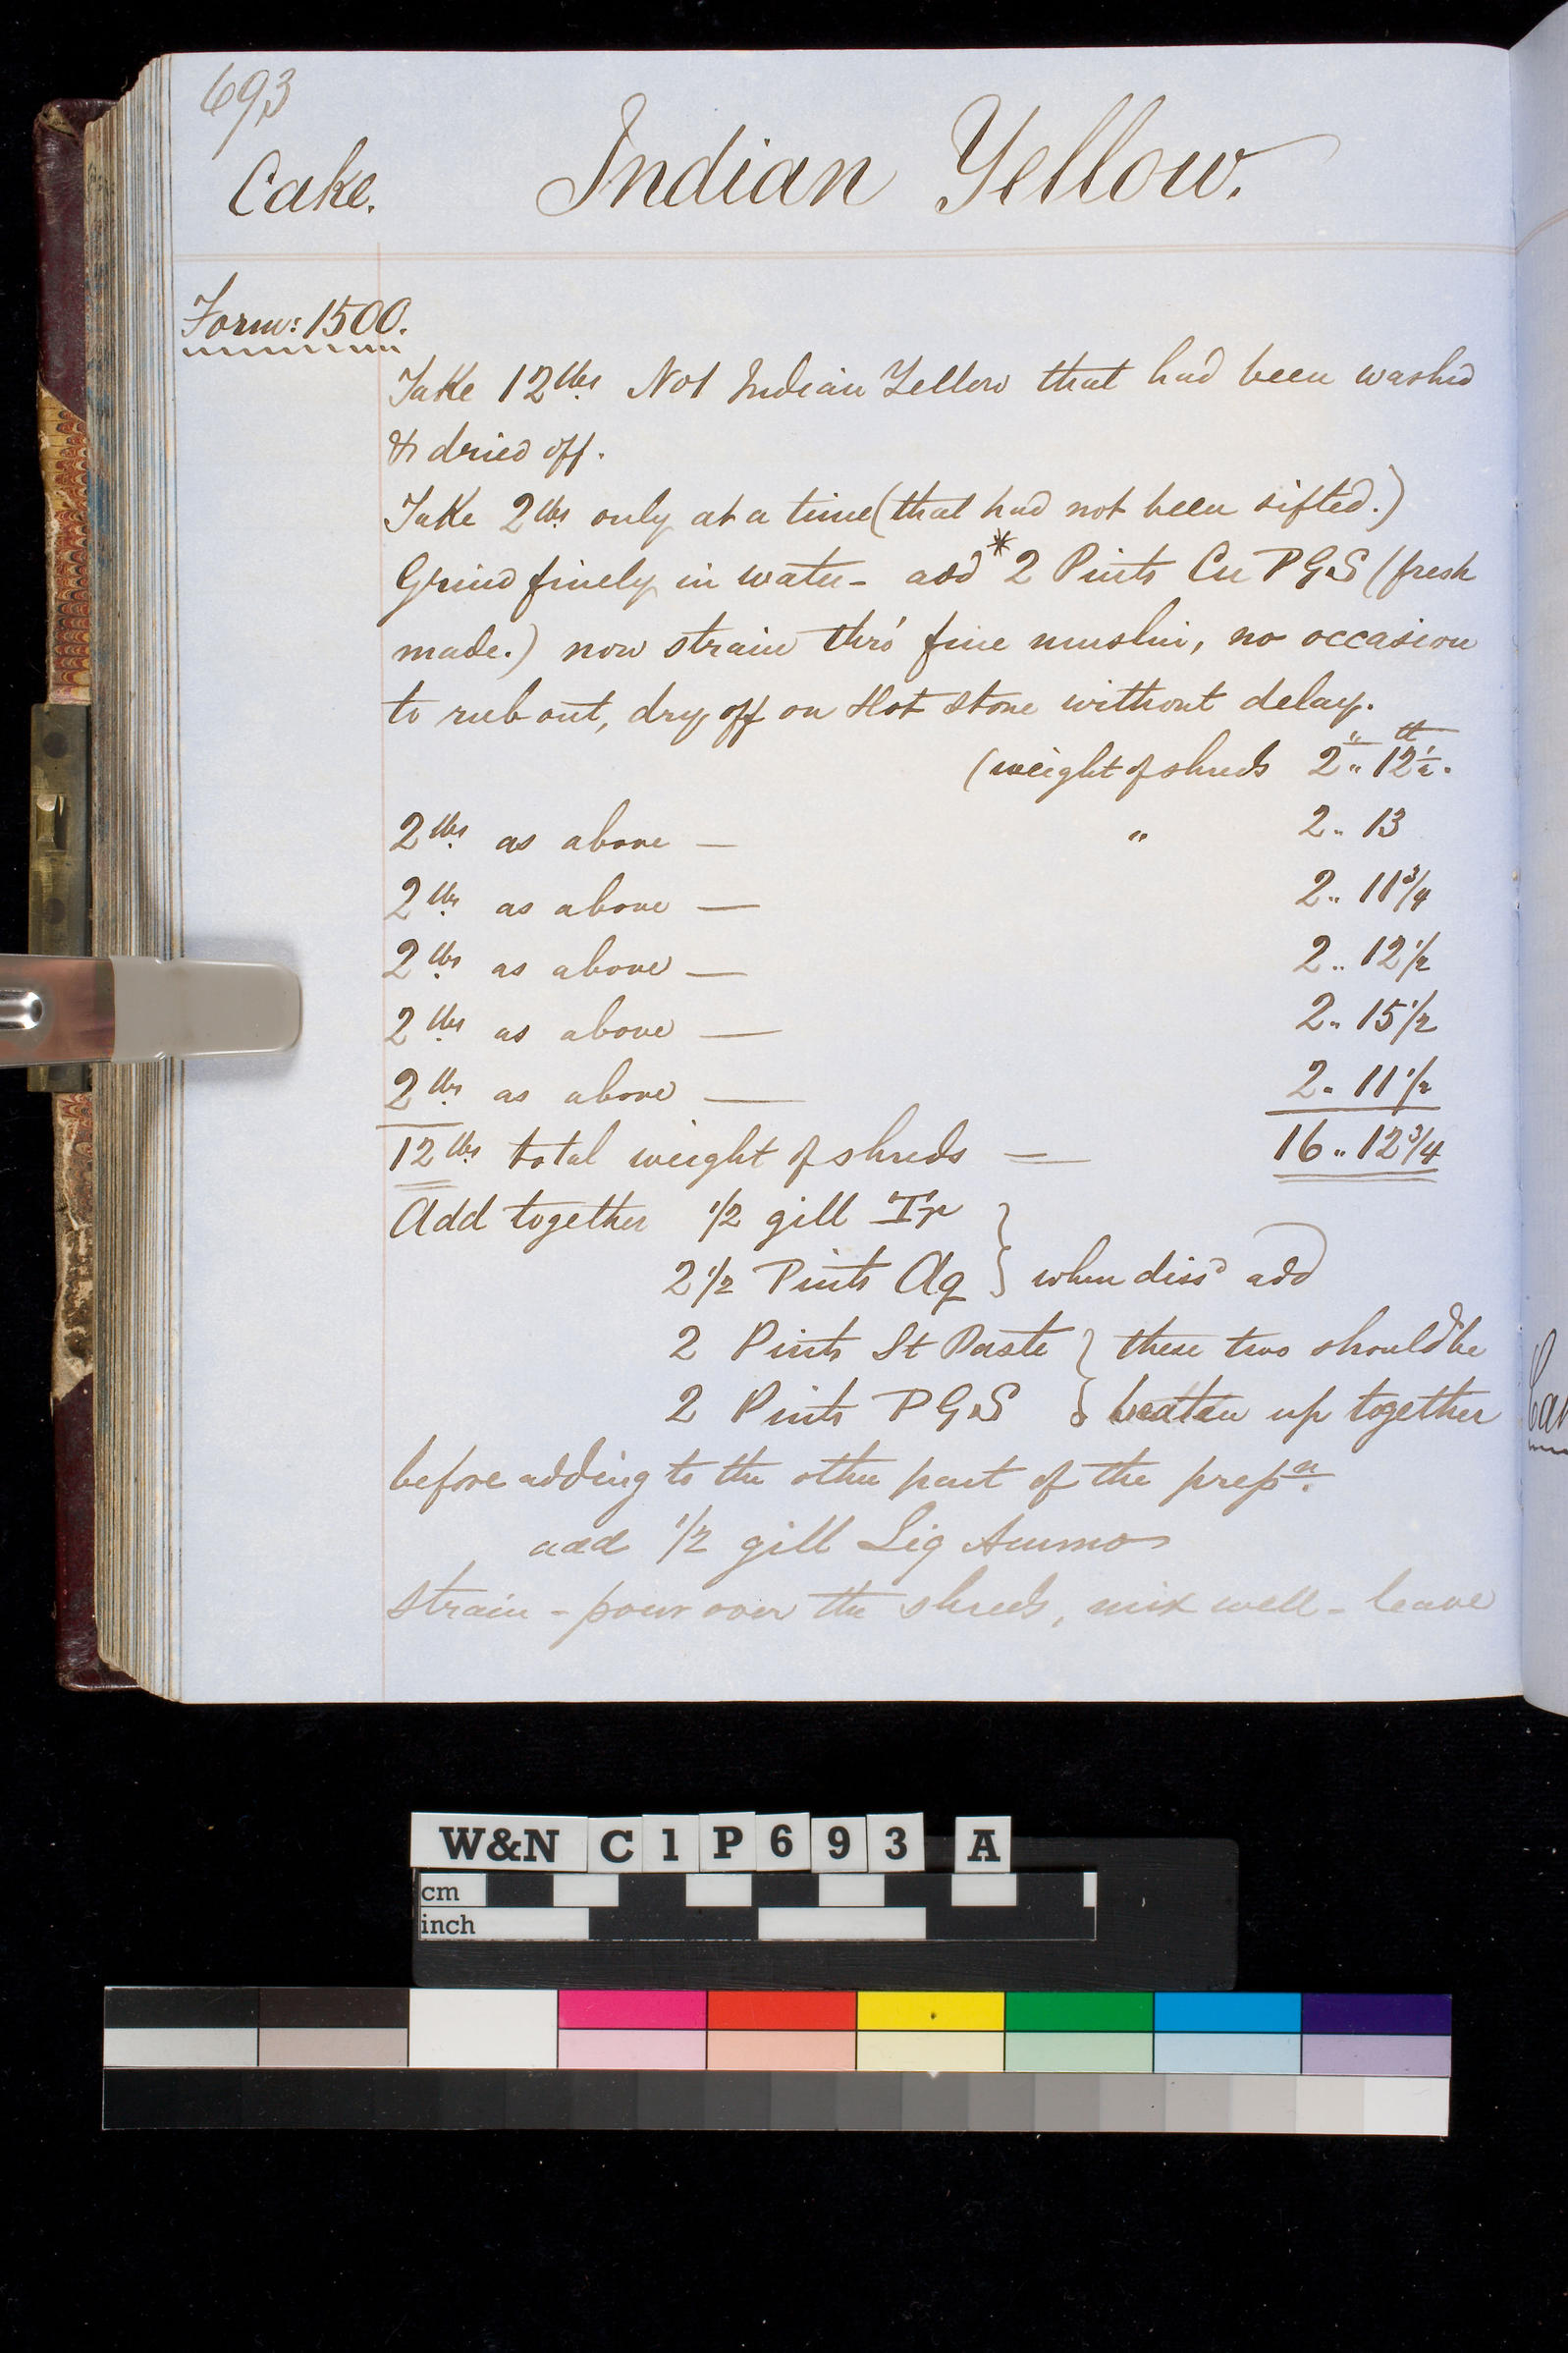 693
Cake. Indian Yellow.
Form: 1500.
Take 12 lbs No 1 Indian Yellow that had been washed
& dried off.
Take 2 lbs only at a time (that had not been sifted.)
Grind finely in water - add * 2 Pints Cu P G S (fresh
made.) now strain thro' fine muslin, no occasion
to rub out, dry off on Hot Stone without delay.
(weight of shreds 2 " 12 1/2.
2 lbs as above — " 2 " 13
2 lbs as above — 2 " 11 3/4
2 lbs as above — 2 " 12 1/2
2 lbs as above — 2 " 15 1/2
2 lbs as above — 2 " 11 1/2
12 lbs total weight of shreds = 16 " 12 3/4
Add together 1/2 gill Tr
2 1/2 Pints Aq } when dissd add
2 Pints St Paste } these two should be
2 Pints P G S } beaten up together
before adding to the other part of the prepn.
add 1/2 gill Liq Ammo
Strain - pour over the shreds, mix well - leave
Car
W&N C1P693 A
cm
inch